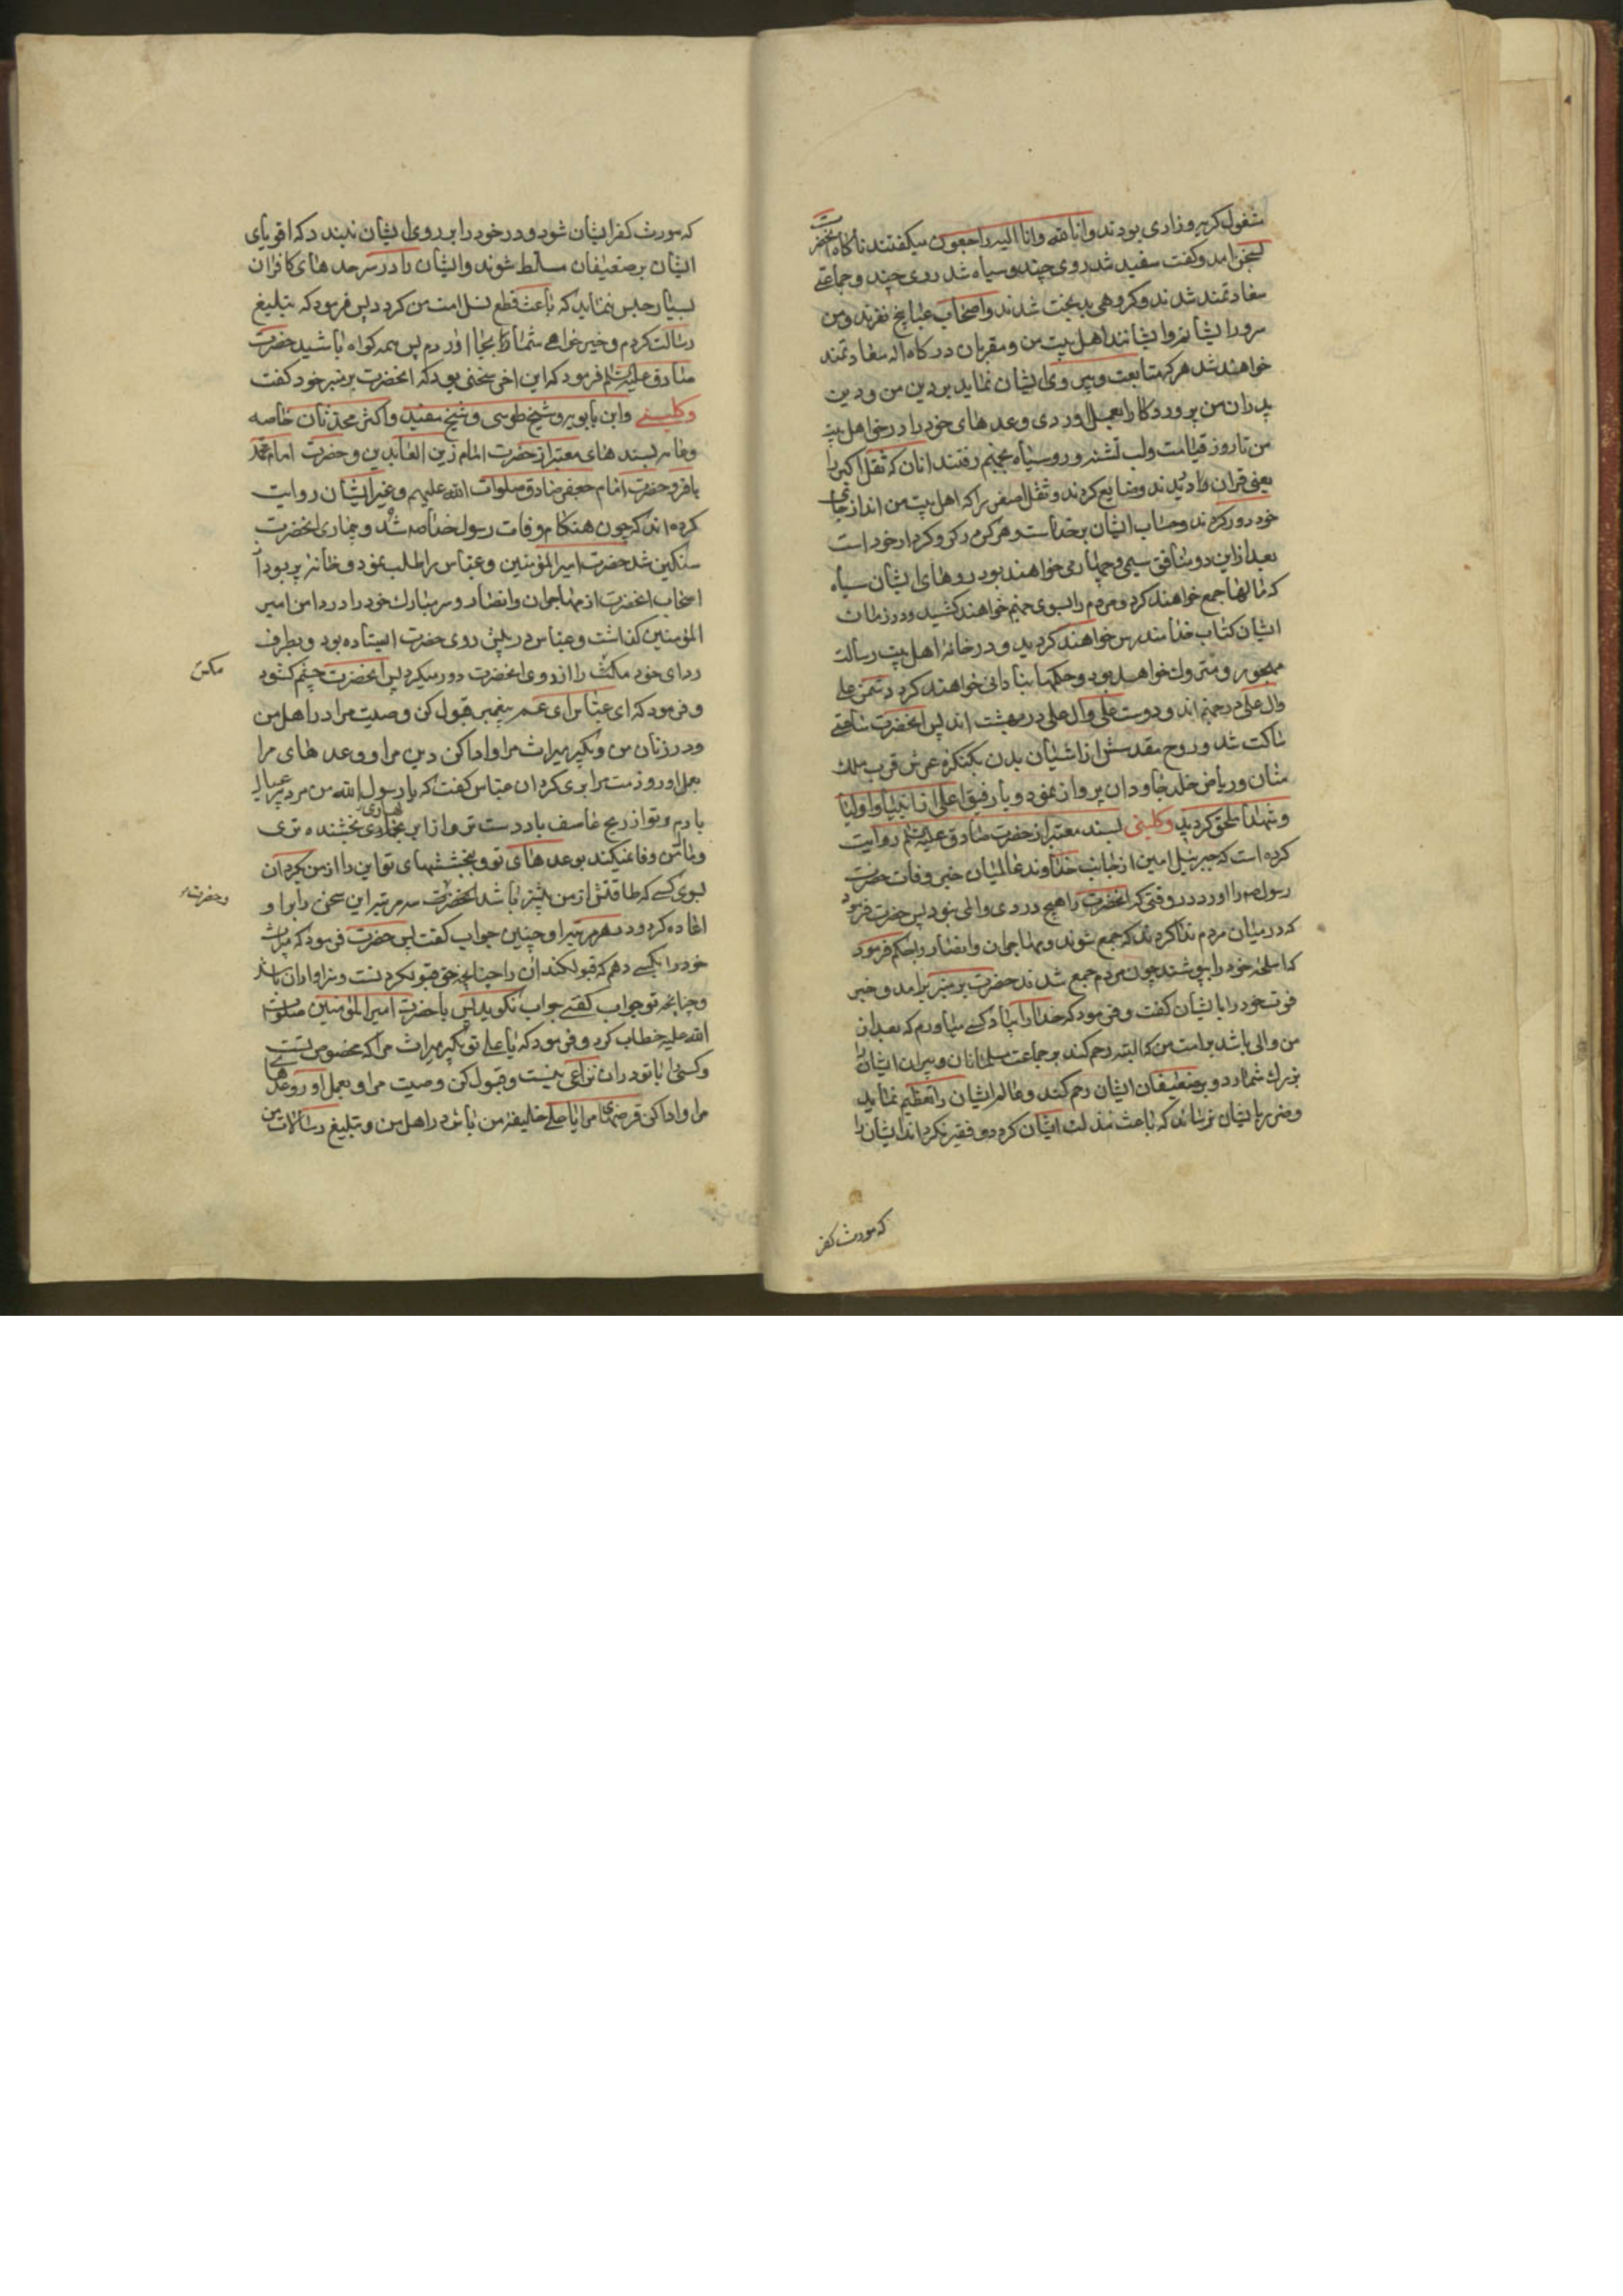 مشغول کریه وزاری بودند وانا لله وانا الیه راجعون میکفتند ناکاه انحضرت
بسخن امد وکفت سفید شد روی چند وسیاه شد روی چند وجماعتی
سعادتمند شدند وکروهی بدبخت شدند واصحاب عبا پنج نفرند ومن
سرور ایشانم وایشانند اهل بیت من ومقربان درکاه اله سعادتمند
خواهند شد هرکه متابعت وپیروی ایشان نماید بر دین من ودین
پدران من پروردکارا بعمل اوردی وعدهای خود را در حق اهل بیت
من تا روز قیامت ولب تشنه وروسیاه بجهنم رفتند انان که ثقل اکبر را
یعنی قران را دریدند وضایع کردند وثقل اصغر را که اهل بیت من اند از جای
خود دور کردند وحساب ایشان بر خداست وهر کس در کرو کردار خود است
بعد از این دو منافق سیم وچهارمی خواهند بود روهای ایشان سیاه
که مالها جمع خواهند کرد ومردم را بسوی جهنم خواهند کشید ودر زمان
ایشان کتاب خدا مندرس خواهند کردید ودر خانهٔ اهل بیت رسالت
مهجور ومتروک خواهد بود وحکمها بنادانی خواهند کرد دشمن علی
وال علی در جهنم اند ودوست علی وال علی در بهشت اند پس انحضرت ساعتی
ساکت شد وروح مقدسش از اشیان بدن بکنکرهٔ عرش قرب ملک
منان وریاض خلد جاودان پرواز نمود وبا رفیق اعلی از انبیا واولیا
وشهدا ملحق کردید وکلینی بسند معتبر از حضرت صادق علیه السلم روایت
کرده است که جبرئیل امین از جانب خداوند عالمیان خبر وفات حضرت
رسول صورا اورد در وقتی که انحضرت را هیچ دردی والمی نبود پس حضرت فرمود
که در میان مردم ندا کردند که جمع شوند ومهاجران وانصار را حکم فرمود
که اسلحهٔ خود را بپوشند چون مردم جمع شدند حضرت بر منبر برامد وخبر
فوت خود را بایشان کفت وفرمود که خدا را بیاد کسی میاورم که بعد از
من والی باشد بر امت من که البته رحم کند بر جماعت مسلمانان وپیران ایشان را
بزرک شمارد وبر ضعیفان ایشان رحم کند وعالم ایشان را تعظیم نماید
وضرر بایشان نرساند که باعث مذلت ایشان کردد وفقیر نکرداند ایشان را
که مورث کفر
که مورث کفر ایشان شود ودر خود را بر روی ایشان نبندد که اقویای
ایشان بر ضعیفان مسلط شوند وایشان را در سرحدهای کافران
بسیار حبس ننماید که باعث قطع نسل امت من کردد پس فرمود که تبلیغ
رسالت کردم وخیرخواهی شما را بجا اوردم پس همه کواه باشید حضرت
صادق علیه السلم فرمود که این اخر سخنی بود که انحضرت بر منبر خود کفت
وکلینی وابن بابویه وشیخ طوسی وشیخ مفید واکثر محدثان خاصه
وعامه بسندهای معتبر از حضرت امام زین العابدین وحضرت امام محمد
باقر وحضرت امام جعفر صادق صلوات الله علیهم وغیر ایشان روایت
کرده اند که چون هنکام وفات رسول خدا صه شد وبیماری انحضرت
سنکین شد حضرت امیرالمؤمنین وعباس را طلب نمود وخانه پر بود از
اصحاب انحضرت از مهاجران وانصار وسر مبارک خود را در دامن امیر
المؤمنین کذاشت وعباس در پیش روی حضرت ایستاده بود وبطرف
ردای خود مکس را از روی انحضرت دور میکرد پس انحضرت چشم کشود
مکس
وفرمود که ای عباس ای عم پیغمبر قبول کن وصیت مرا در اهل من
ودر زنان من وبکیر میراث مرا وادا کن دین مرا ووعدهای مرا
بعمل اور وذمت مرا بری کردان عباس کفت که یا رسول الله من مرد پیر عیال
بادم وتو از ریح عاصف باددست تر واز ابر بهاری بخشنده تری
ومال من وفا نمیکند بوعدهای تو وبخششهای تو این را از من بکردان
بسوی کسی که طاقتش از من بیشتر باشد انحضرت سه مرتبه این سخن را بر او
وحضرت
اعاده کرد ودر هر مرتبه او چنین جواب کفت پس حضرت فرمود که میراث
خود را بکسی دهم که قبول کند ان را چنانچه حق قبول کردنست وسزاوار ان باشد
وچنانچه تو جواب کفتی جواب نکوید پس با حضرت امیرالمؤمنین صلوات
الله علیه خطاب کرد وفرمود که یا علی تو بکیر میراث مرا که مخصوص تست
وکسی را با تو در ان نزاعی نیست وقبول کن وصیت مرا وبعمل اور وعدهای
مرا وادا کن قرضهای مرا یا علی خلیفهٔ من باش در اهل من وتبلیغ رسالات من